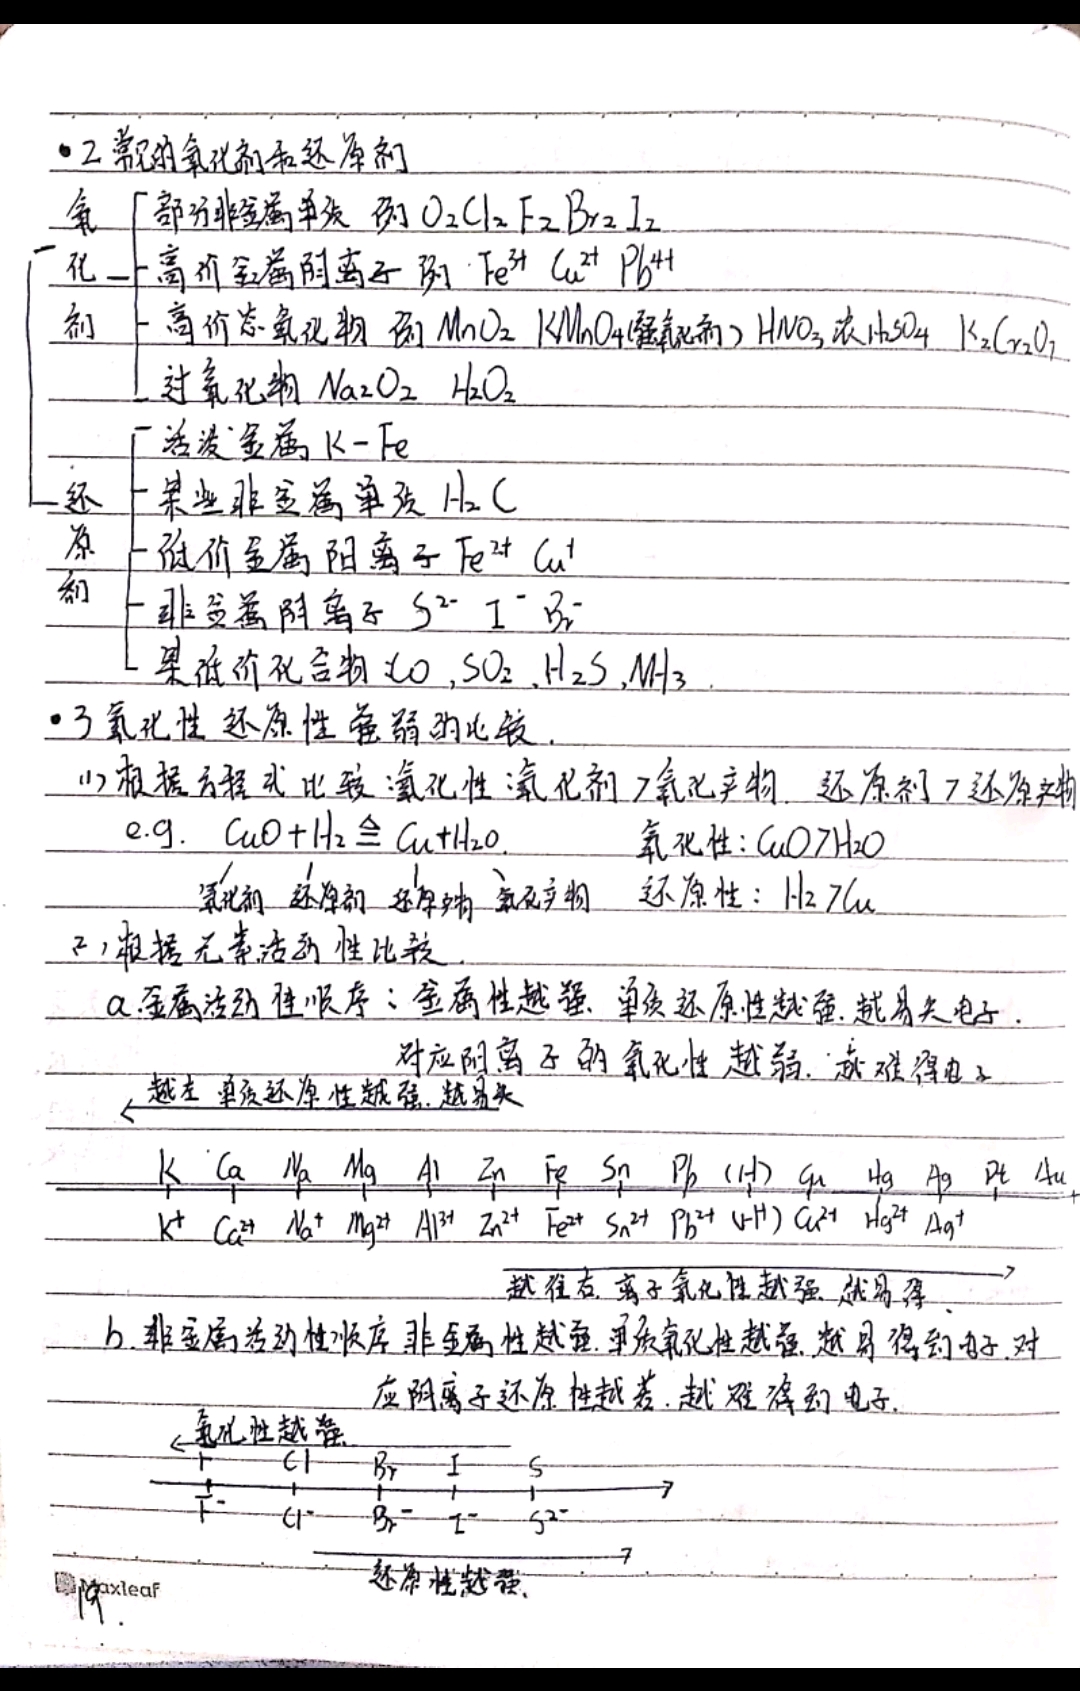 •2 常见的氧化剂和还原剂
氧化剂
部分非金属单质 例 O₂ Cl₂ F₂ Br₂ I₂
高价金属阳离子 例 Fe³⁺ Cu²⁺ Pb⁴⁺
高价态氧化物 例 MnO₂ KMnO₄(强氧化剂) HNO₃ 浓H₂SO₄ K₂Cr₂O₇
过氧化物 Na₂O₂ H₂O₂
还原剂
活泼金属 K-Fe
某些非金属单质 H₂ C
低价金属阳离子 Fe²⁺ Cu⁺
非金属阴离子 S²⁻ I⁻ Br⁻
某低价化合物 CO,SO₂,H₂S,NH₃.
•3 氧化性 还原性 强弱的比较.
(1) 根据方程式比较:氧化性:氧化剂>氧化产物. 还原剂>还原产物
e.g. CuO+H₂ ≙ Cu+H₂O. 氧化性: CuO>H₂O
氧化剂 还原剂 还原产物 氧化产物 还原性: H₂>Cu
(2) 根据元素活动性比较.
a.金属活动性顺序: 金属性越强. 单质还原性越强.越易失电子.
对应阴离子的氧化性越弱. 越难得电子
越左 单质还原性越强.越易失
K Ca Na Mg Al Zn Fe Sn Pb (H) Cu Hg Ag Pt Au
K⁺ Ca²⁺ Na⁺ Mg²⁺ Al³⁺ Zn²⁺ Fe²⁺ Sn²⁺ Pb²⁺ (H⁺) Cu²⁺ Hg²⁺ Ag⁺
越往右 离子氧化性越强 越易得.
b. 非金属活动性顺序 非金属性越强.单质氧化性越强.越易得到电子.对
应阴离子还原性越差.越难得到电子.
氧化性越强
F Cl Br I S
F⁻ Cl⁻ Br⁻ I⁻ S²⁻
还原性越强.
Maxleaf
19.